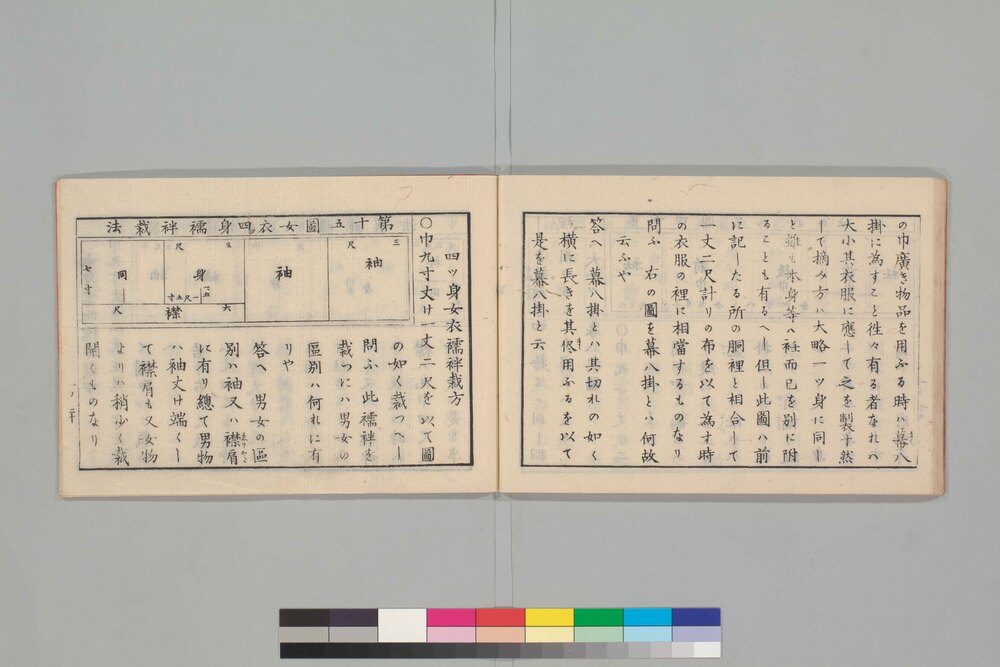 の巾廣き物品を用ふる時ハ幕八
掛に為すこと徃々有る者なれハ
大小其衣服に應して之を製す然
して摘み方ハ大略一ツ身に同し
と雖も本身等ハ衽而已を別に附
ることも有るへし但し此圖ハ前
に記したる所の胴裡と相合して
一丈二尺計りの布を以て為す時
の衣服の裡に相當するものなり
問ふ 右の圖を幕八掛とハ何故
云ふや
答へ 幕八掛とハ其切れの如く
横に長きを其侭用ふるを以て
是を幕八掛と云
四ッ身女衣襦袢裁方
〇巾九寸丈け一丈二尺を以て圖
の如く裁つへし
問ふ此襦袢を
裁つにハ男女の
區别ハ何れに有
りや
答へ 男女の區
别ハ袖又ハ襟肩
に有り總て男物
ハ袖丈け端くし
て襟肩も又女物
よりハ稍少く裁
開くものなり
第十五圖女衣四身襦袢裁法
三尺
袖
袖
五尺
身
一尺五寸
六尺
襟
同
七寸